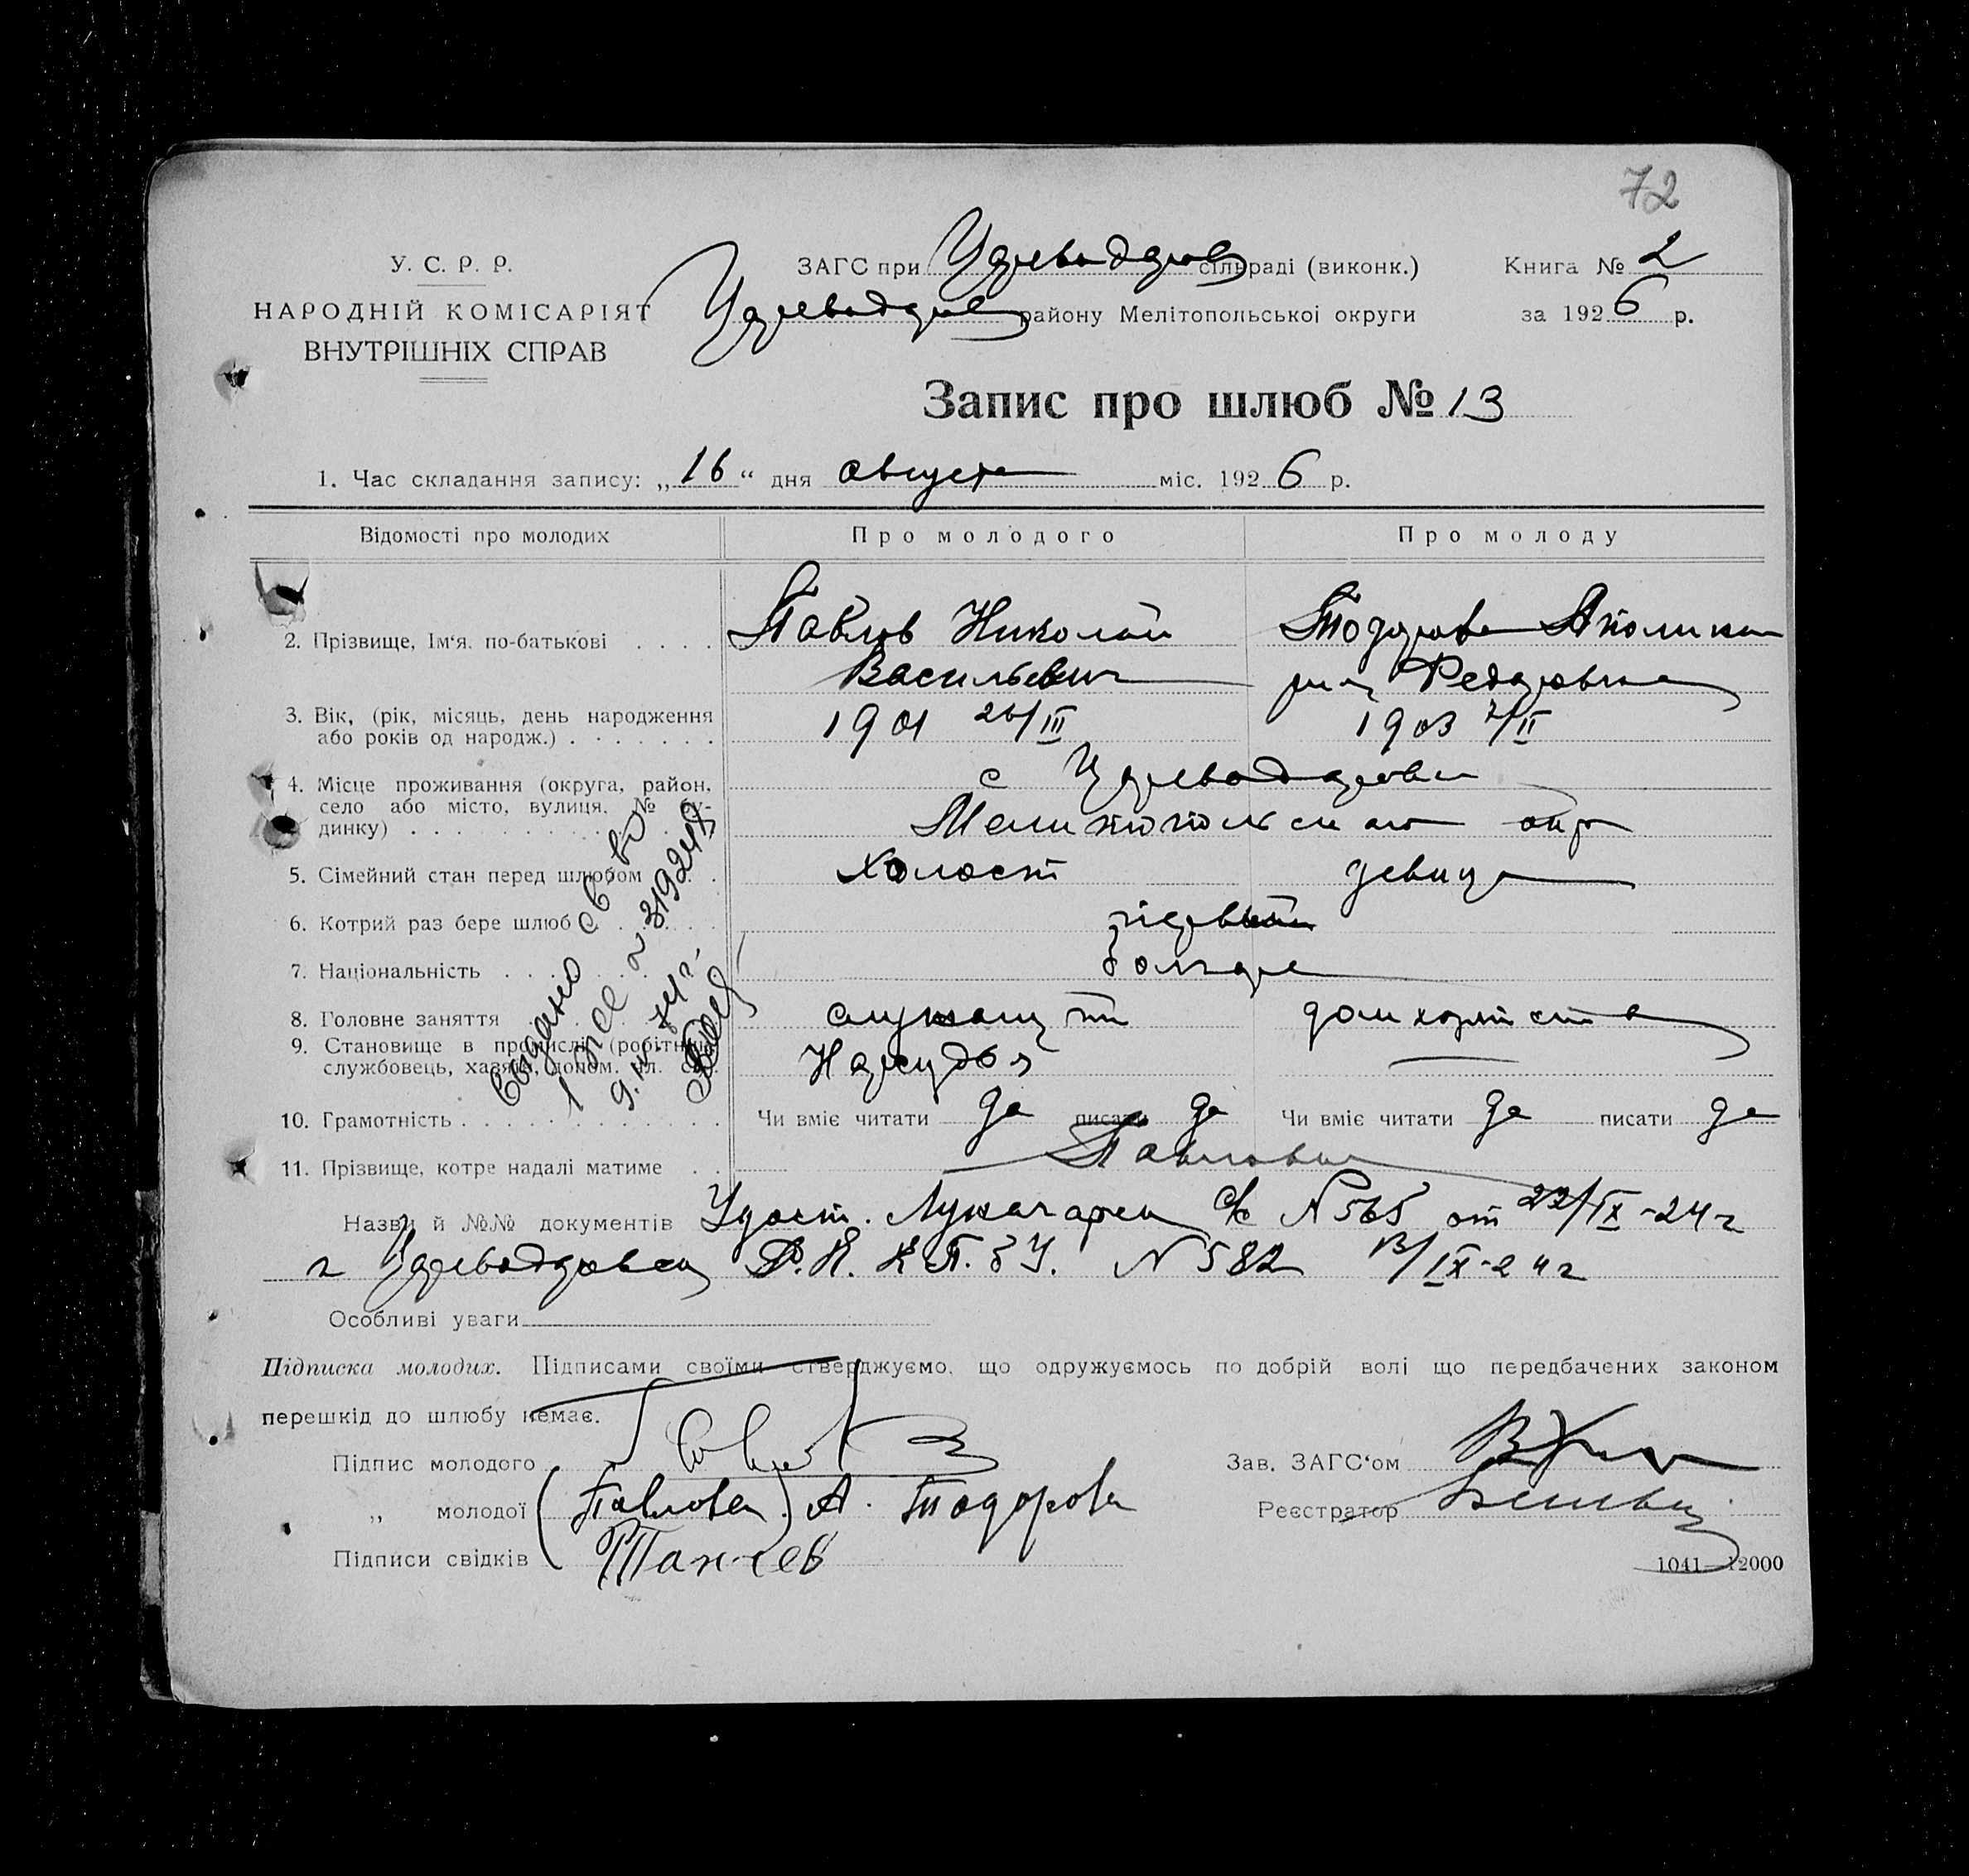 72
У. С. Р. Р.
НАРОДНІЙ КОМІСАРІЯТ
ВНУТРІШНІХ СПРАВ
ЗАГС при Цареводаров сільраді (виконк.)
Цареводар району Мелітопольської округи
Книга № 2
за 1926 р.
Запис про шлюб № 13
1. Час складання запису: „16“ дня августа міс. 1926 р.
Відомості про молодих Про молодого Про молоду
2. Прізвище, Ім‘я, по-батькові . . . . Павлов Николай Тодорова Аполина
Васильевич рия Федоровна
3. Вік, (рік, місяць, день народження
або років од народж.) . . . . . . . 1901 26/III 1903 2/II
4. Місце проживання (округа, район, с Цареводаровка
село або місто, вулиця, № бу-
динку) Мелитопольского окр
5. Сімейний стан перед шлюбом холост девица
6. Котрий раз бере шлюб первый
7. Національність болгаре
8. Головне заняття служащий домхозяйства
9. Становище в промислі (робітник,
службовець, хазяїн, допом. чл. сем. Нарсудья —
10. Грамотність Чи вміє читати да писати да Чи вміє читати да писати да
11. Прізвище, котре надалі матиме Павловы
Выдано св во
319248
Назви й №№ документів Удост. Луначарск с/с № 565 от 22/IX-24 г
и Цареводаровск Р.К. КП.бУ. № 582 13/IX-24 г
Особливі уваги
Підписка молодих. Підписами своїми стверджуємо, що одружуємось по добрій волі що передбачених законом
перешкід до шлюбу немає.
Підпис молодого
Зав. ЗАГС‘ом
„ молодої (Павлова) А. Тодорова
Реєстратор
Підписи свідків Танчев
1041—12000